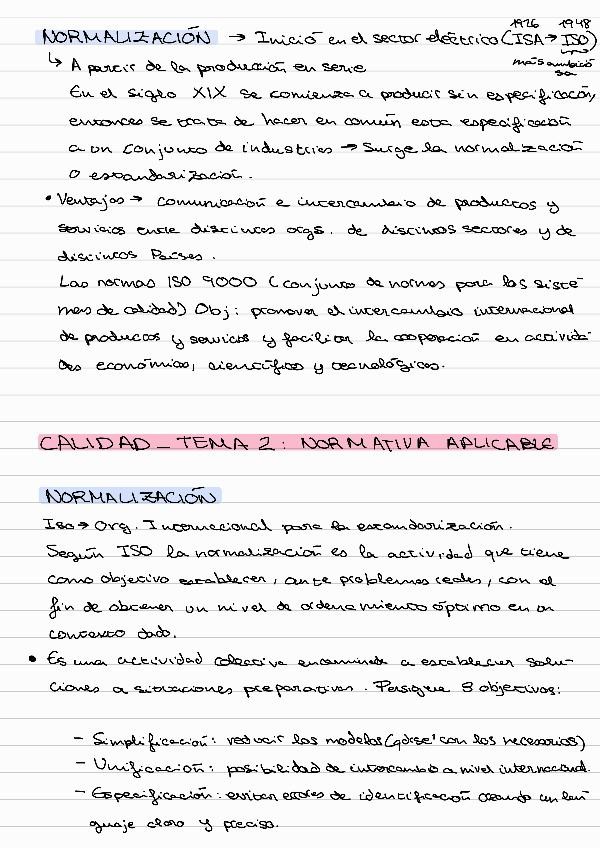 1926 1948
NORMALIZACIÓN → Inició en el sector eléctrico (ISA → ISO)
más ambicio
sa
↳ A partir de la producción en serie
En el siglo XIX se comienza a producir sin especificación,
entonces se trata de hacer en común esta especificación
a un conjunto de industrias → Surge la normalización
o estandarización.
• Ventajas → comunicación e intercambio de productos y
servicios entre distintas orgs. de distintos sectores y de
distintos Países.
Las normas ISO 9000 (conjunto de normas para los siste-
mas de calidad) Obj: promover el intercambio internacional
de productos y servicios y facilitar la cooperación en activida-
des económicas, científicas y tecnológicas.
CALIDAD - TEMA 2: NORMATIVA APLICABLE
NORMALIZACIÓN
Iso → Org. Internacional para la estandarización.
Según ISO la normalización es la actividad que tiene
como objetivo establecer, ante problemas reales, con el
fin de obtener un nivel de ordenamiento óptimo en un
contexto dado.
• Es una actividad colectiva encaminada a establecer solu-
ciones a situaciones preparativas. Persigue 3 objetivos:
- Simplificación: reducir los modelos (qdrse' con los necesarios)
- Unificación: posibilidad de intercambio a nivel internacional.
- Especificación: evitar errores de identificación creando un len-
guaje claro y preciso.